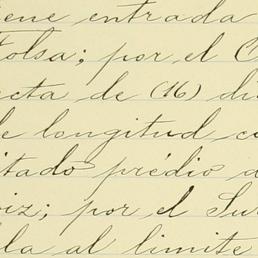 iene entrada
Tolsa; por el C
ecta de (16) di
de longitud co
itado prédio a
oiz; por el Sur
la al limite